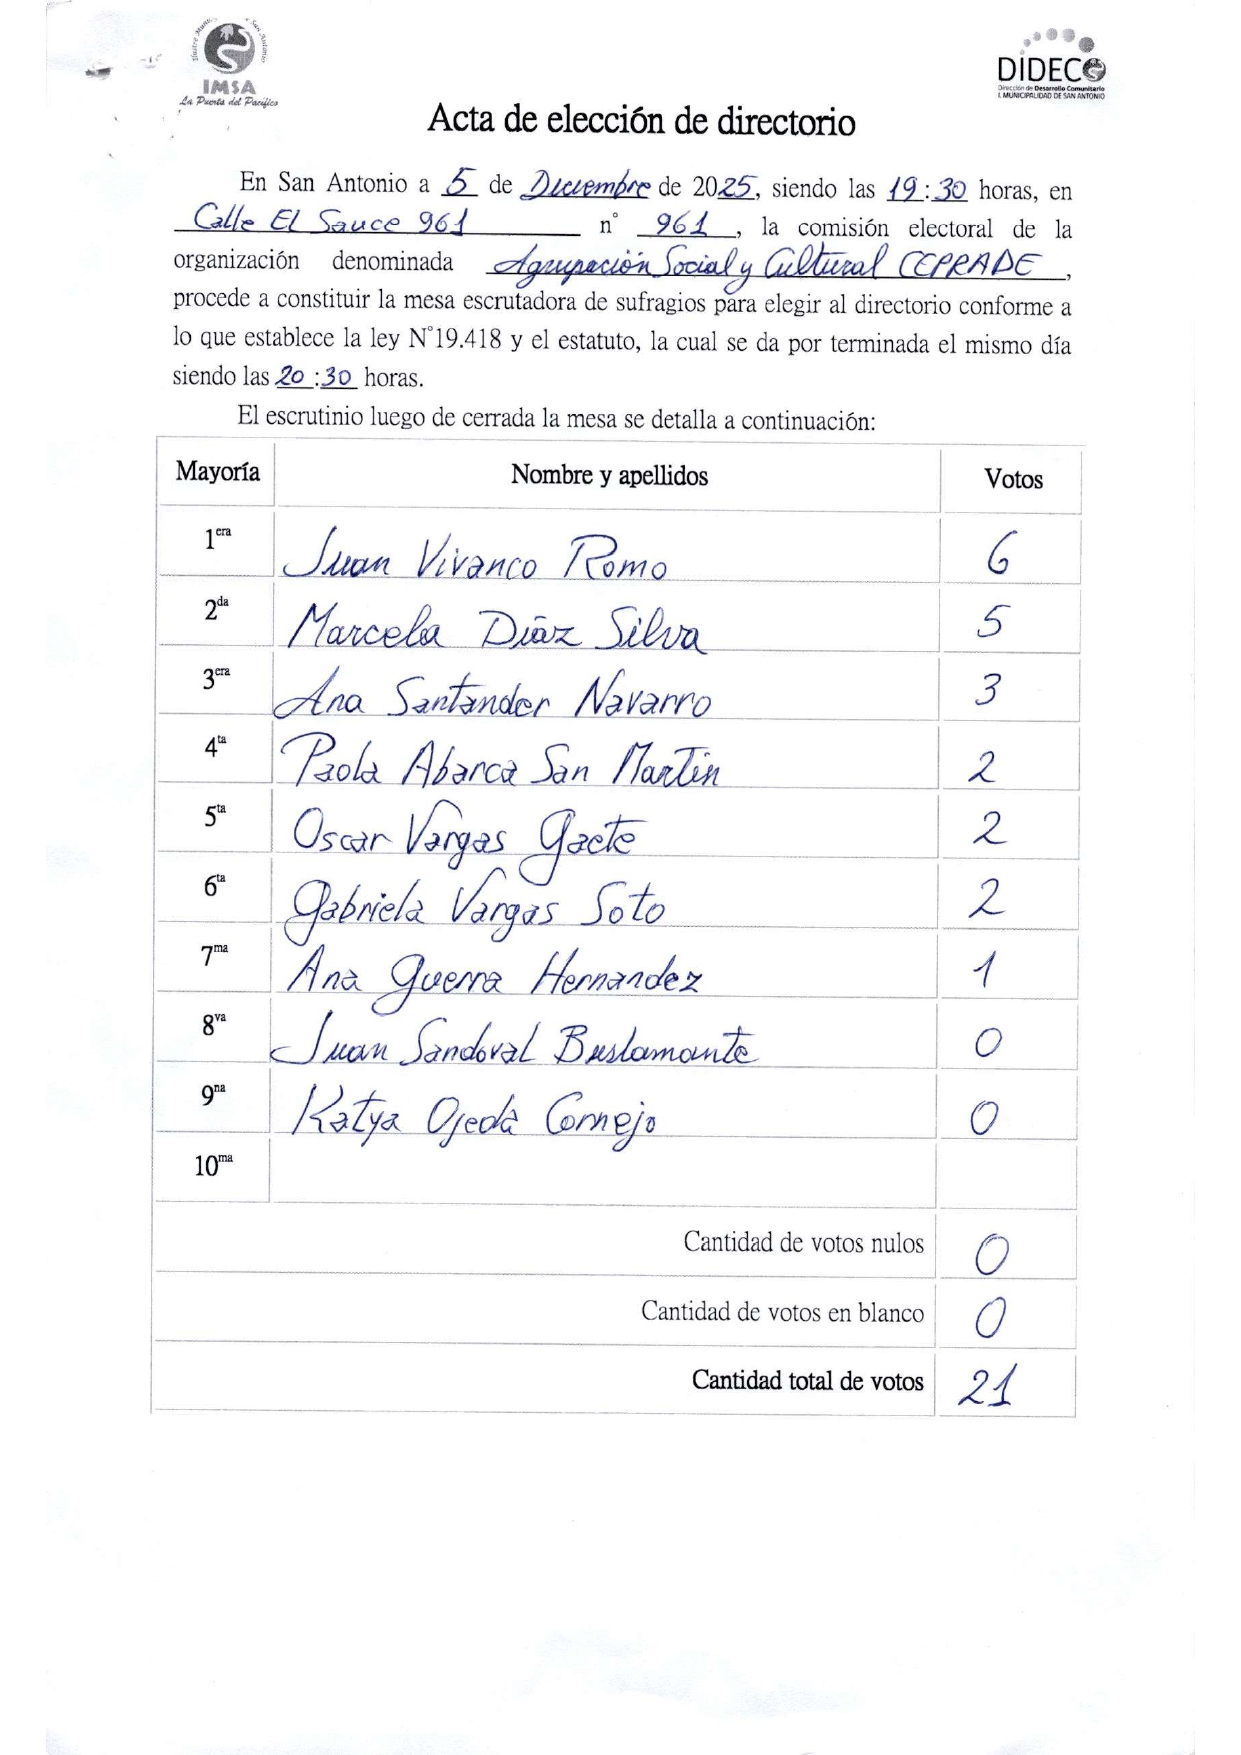 Ilustre Municipalidad San Antonio
IMSA
La Puerta del Pacífico
DIDECO
Dirección de Desarrollo Comunitario
I. MUNICIPALIDAD DE SAN ANTONIO
Acta de elección de directorio
En San Antonio a 5 de Diciembre de 2025, siendo las 19:30 horas, en
Calle El Sauce 961 n° 961, la comisión electoral de la
organización denominada Agrupación Social y Cultural CEPRADE,
procede a constituir la mesa escrutadora de sufragios para elegir al directorio conforme a
lo que establece la ley N°19.418 y el estatuto, la cual se da por terminada el mismo día
siendo las 20:30 horas.
El escrutinio luego de cerrada la mesa se detalla a continuación:
Mayoría Nombre y apellidos Votos
1era Juan Vivanco Romo 6
2da Marcela Diaz Silva 5
3era Ana Santander Navarro 3
4ta Paola Abarca San Martin 2
5ta Oscar Vargas Gaete 2
6ta Gabriela Vargas Soto 2
7ma Ana Guerra Hernandez 1
8va Juan Sandoval Bustamante 0
9na Katya Ojeda Cornejo 0
10ma
Cantidad de votos nulos 0
Cantidad de votos en blanco 0
Cantidad total de votos 21